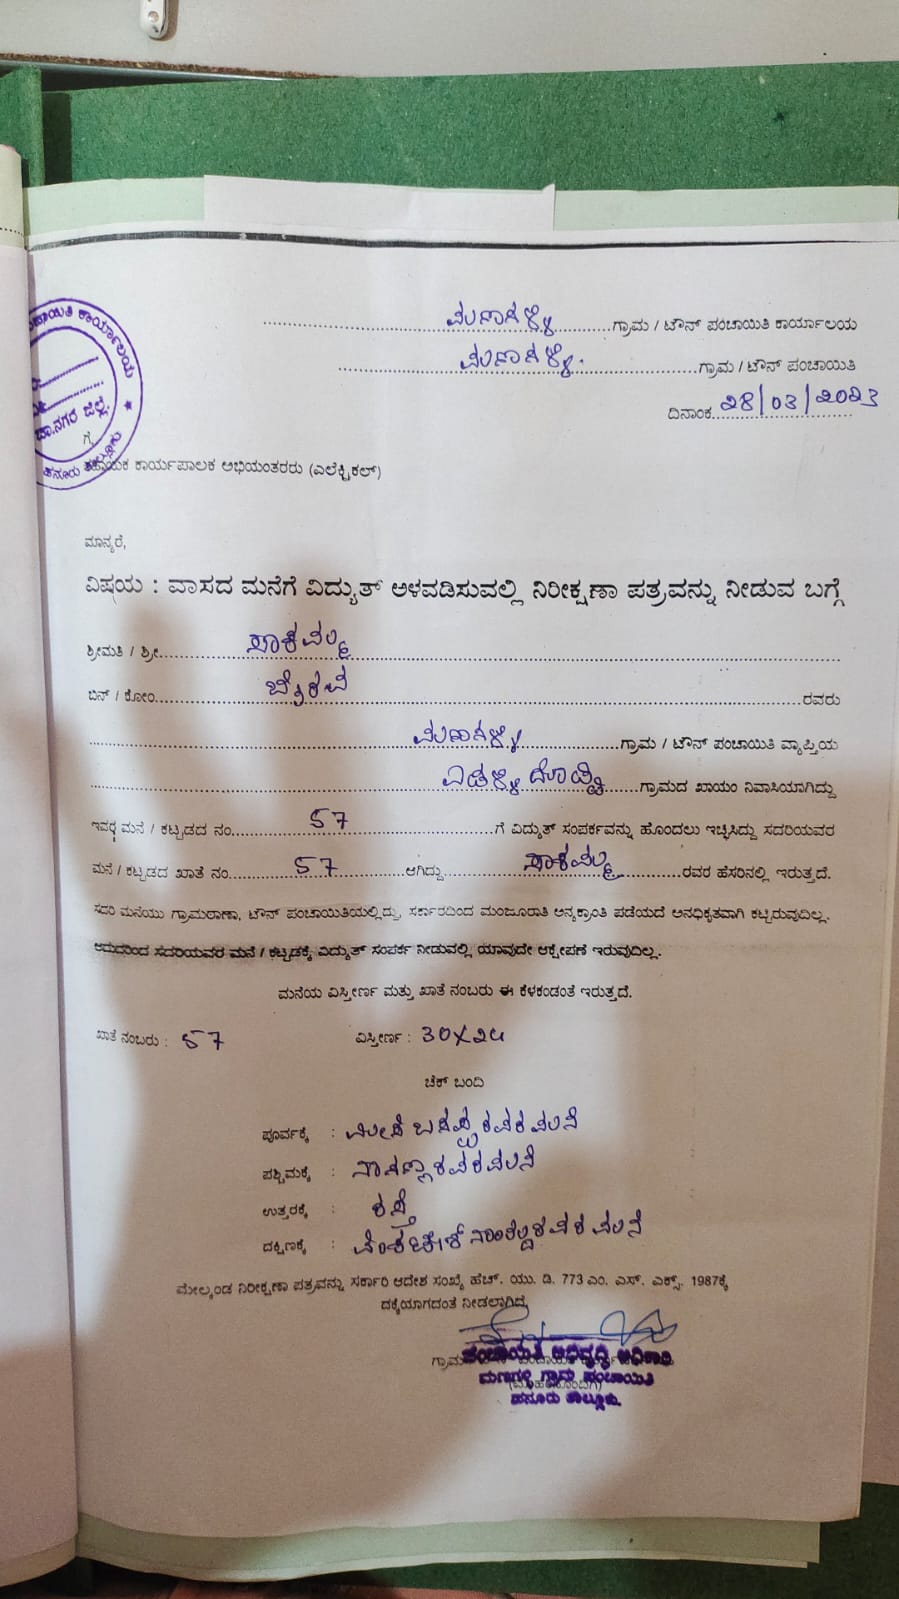 ಮಣಗಳ್ಳಿ ಗ್ರಾಮ / ಟೌನ್ ಪಂಚಾಯಿತಿ ಕಾರ್ಯಾಲಯ
ಮಣಗಳ್ಳಿ ಗ್ರಾಮ / ಟೌನ್ ಪಂಚಾಯಿತಿ
ದಿನಾಂಕ 28/03/2023
ಪಂಚಾಯಿತಿ ಕಾರ್ಯಾಲಯ
ಚಾ.ನಗರ ಜಿಲ್ಲೆ.
ಹನೂರು ತಾಲ್ಲೂಕು
ಗೆ,
ಸಹಾಯಕ ಕಾರ್ಯಪಾಲಕ ಅಭಿಯಂತರರು (ಎಲೆಕ್ಟ್ರಿಕಲ್)
ಮಾನ್ಯರೆ,
ವಿಷಯ : ವಾಸದ ಮನೆಗೆ ವಿದ್ಯುತ್ ಅಳವಡಿಸುವಲ್ಲಿ ನಿರೀಕ್ಷಣಾ ಪತ್ರವನ್ನು ನೀಡುವ ಬಗ್ಗೆ
ಶ್ರೀಮತಿ / ಶ್ರೀ ಸಾಕಮ್ಮ
ಬಿನ್ / ಕೋಂ ರವರು
ಮಣಗಳ್ಳಿ ಗ್ರಾಮ / ಟೌನ್ ಪಂಚಾಯಿತಿ ವ್ಯಾಪ್ತಿಯ
ಎಡಳ್ಳಿ ದೊಡ್ಡಿ ಗ್ರಾಮದ ಖಾಯಂ ನಿವಾಸಿಯಾಗಿದ್ದು
ಇವರ ಮನೆ / ಕಟ್ಟಡದ ನಂ. 57 ಗೆ ವಿದ್ಯುತ್ ಸಂಪರ್ಕವನ್ನು ಹೊಂದಲು ಇಚ್ಛಿಸಿದ್ದು ಸದರಿಯವರ
ಮನೆ / ಕಟ್ಟಡದ ಖಾತೆ ನಂ. 57 ಆಗಿದ್ದು ಸಾಕಮ್ಮ ರವರ ಹೆಸರಿನಲ್ಲಿ ಇರುತ್ತದೆ.
ಸದರಿ ಮನೆಯು ಗ್ರಾಮಠಾಣಾ, ಟೌನ್ ಪಂಚಾಯಿತಿಯಲ್ಲಿದ್ದು, ಸರ್ಕಾರದಿಂದ ಮಂಜೂರಾತಿ ಅನ್ಯಕ್ರಾಂತಿ ಪಡೆಯದೆ ಅನಧಿಕೃತವಾಗಿ ಕಟ್ಟಿರುವುದಿಲ್ಲ.
ಆದುದರಿಂದ ಸದರಿಯವರ ಮನೆ / ಕಟ್ಟಡಕ್ಕೆ ವಿದ್ಯುತ್ ಸಂಪರ್ಕ ನೀಡುವಲ್ಲಿ ಯಾವುದೇ ಆಕ್ಷೇಪಣೆ ಇರುವುದಿಲ್ಲ.
ಮನೆಯ ವಿಸ್ತೀರ್ಣ ಮತ್ತು ಖಾತೆ ನಂಬರು ಈ ಕೆಳಕಂಡಂತೆ ಇರುತ್ತದೆ.
ಖಾತೆ ನಂಬರು : 57 ವಿಸ್ತೀರ್ಣ : 30X24
ಚೆಕ್ ಬಂದಿ
ಪೂರ್ವಕ್ಕೆ : ಬಸಪ್ಪರವರ ಮನೆ
ಪಶ್ಚಿಮಕ್ಕೆ : ನಾಗಣ್ಣರವರ ಮನೆ
ಉತ್ತರಕ್ಕೆ : ರಸ್ತೆ
ದಕ್ಷಿಣಕ್ಕೆ : ವೆಂಕಟೇಶ್ ರವರ ಮನೆ
ಮೇಲ್ಕಂಡ ನಿರೀಕ್ಷಣಾ ಪತ್ರವನ್ನು ಸರ್ಕಾರಿ ಆದೇಶ ಸಂಖ್ಯೆ ಹೆಚ್. ಯು. ಡಿ. 773 ಎಂ. ಎಸ್. ಎಕ್ಸ್. 1987ಕ್ಕೆ
ದಕ್ಕೆಯಾಗದಂತೆ ನೀಡಲಾಗಿದೆ.
ಪಂಚಾಯಿತಿ ಅಭಿವೃದ್ಧಿ ಅಧಿಕಾರಿ
ಮಣಗಳ್ಳಿ ಗ್ರಾಮ ಪಂಚಾಯಿತಿ
ಹನೂರು ತಾಲ್ಲೂಕು.